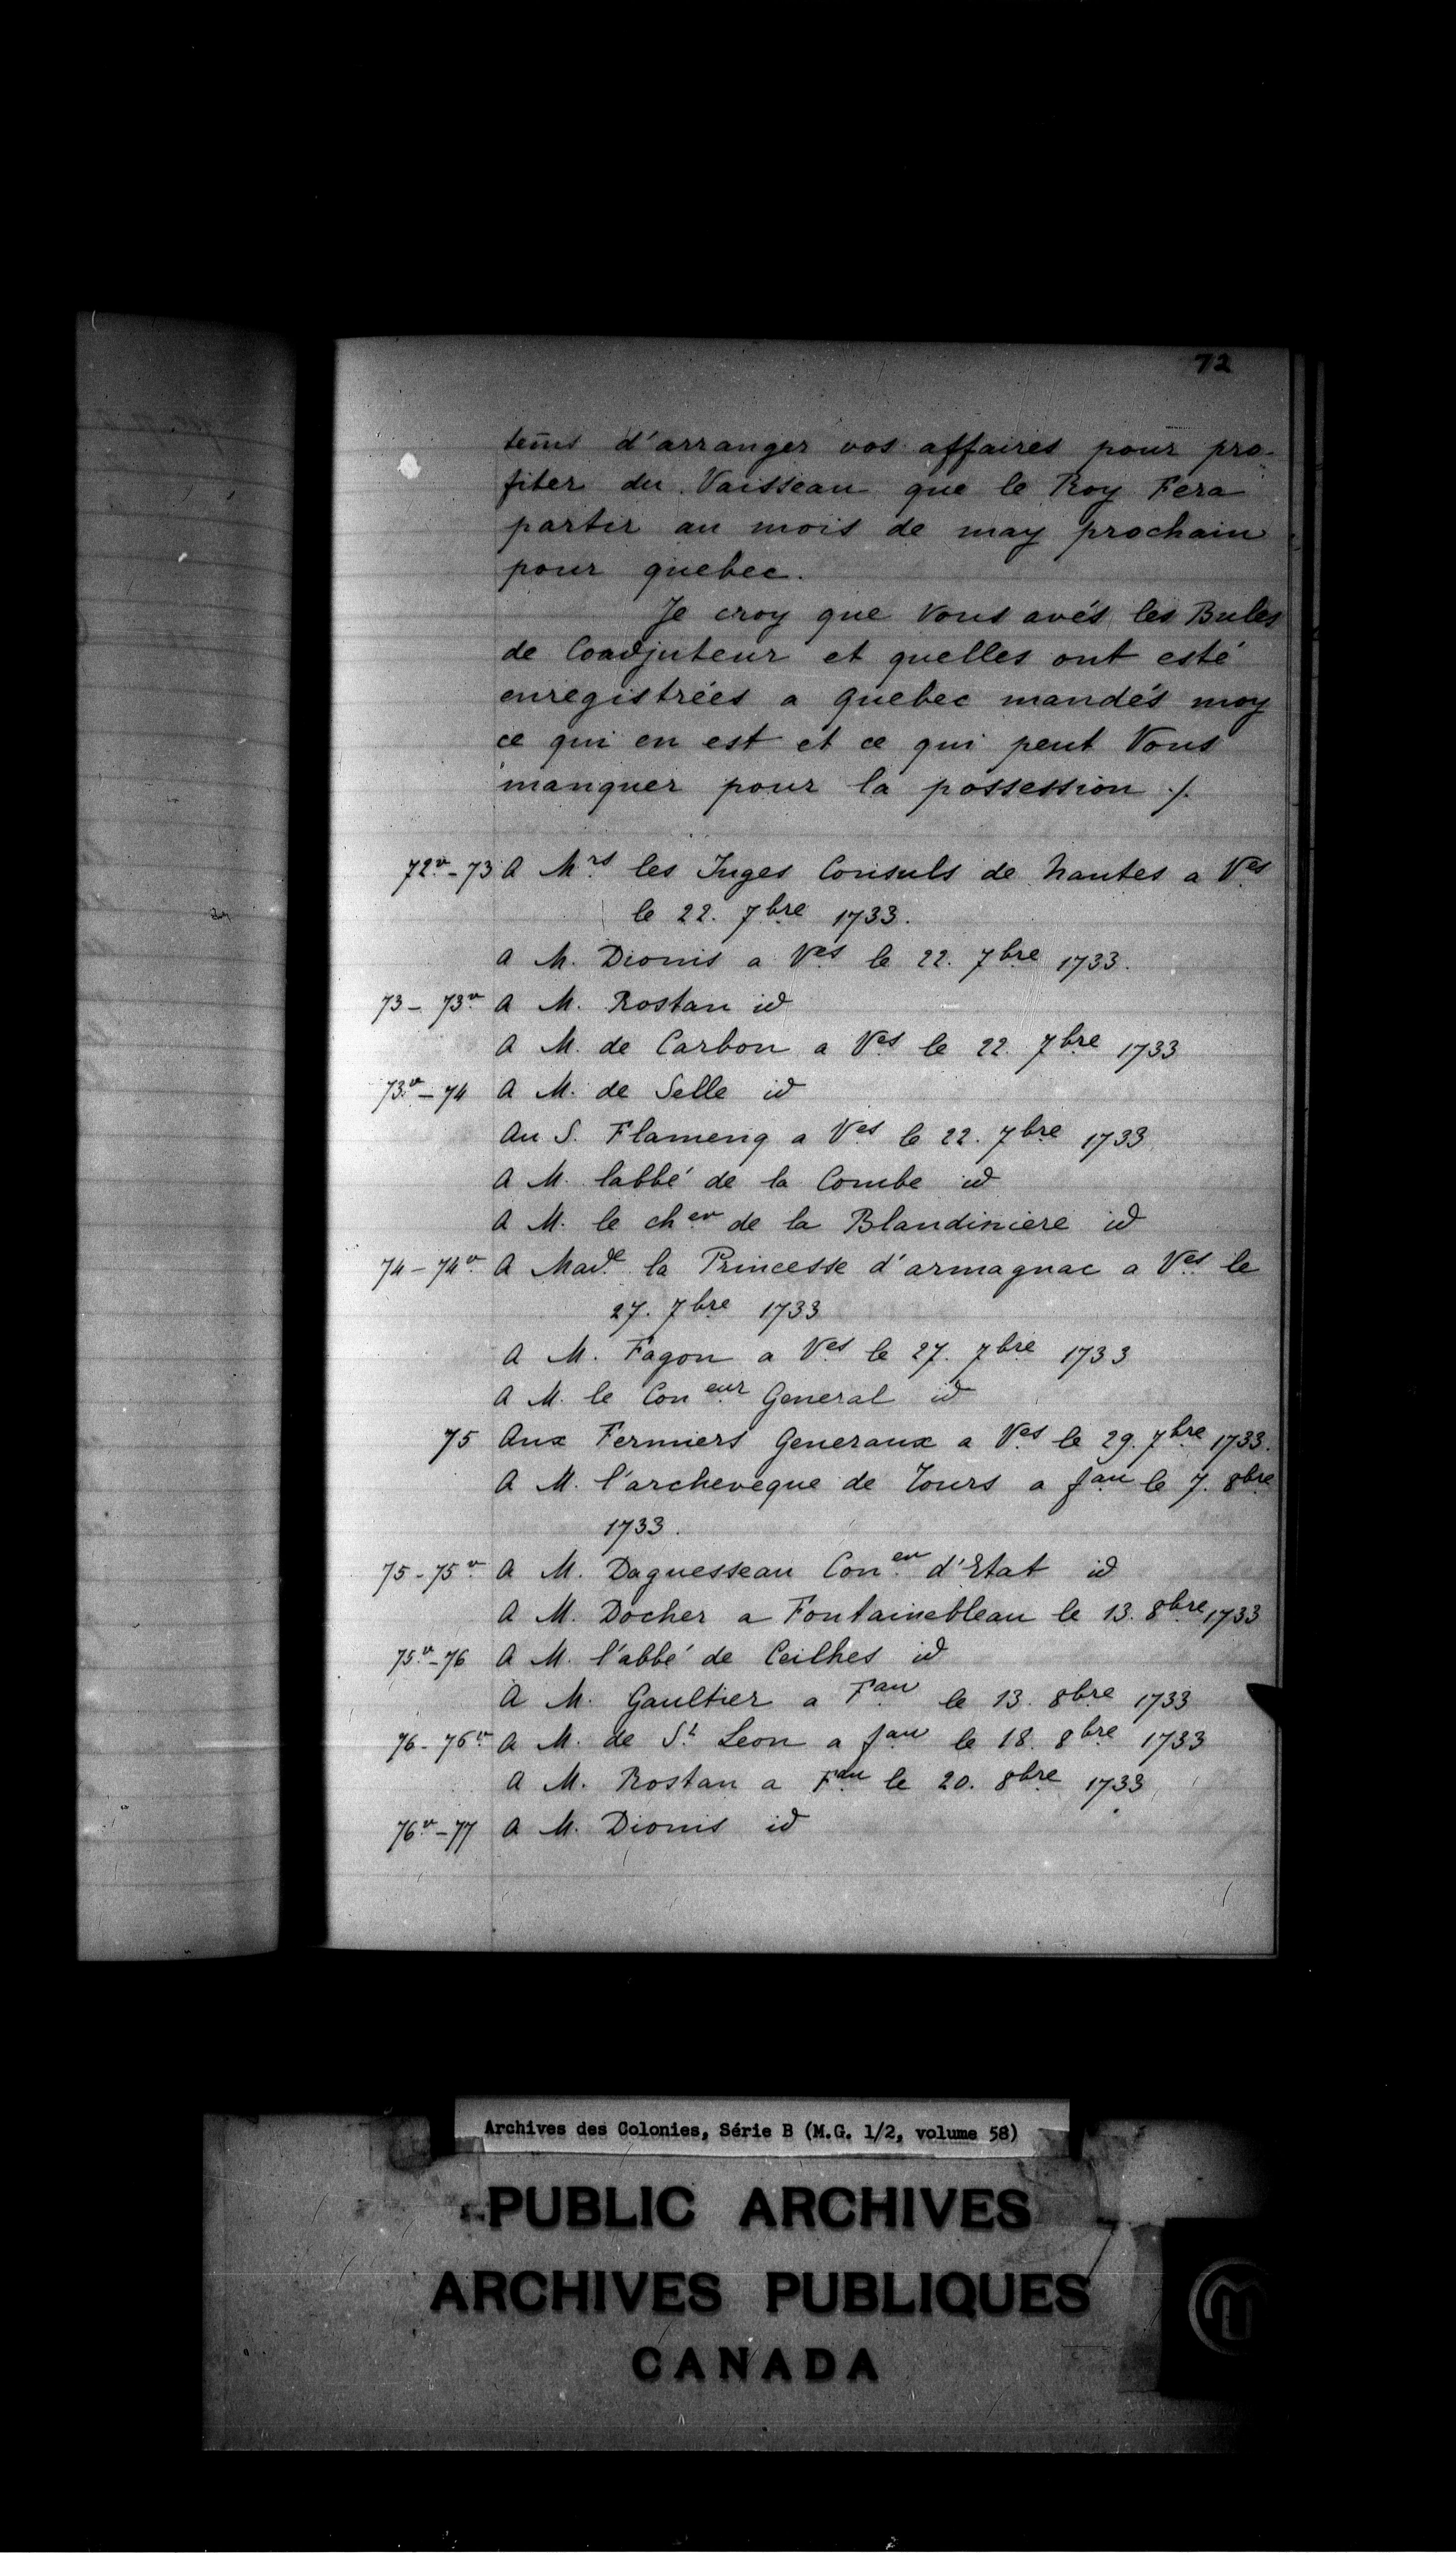 72
tems d'arranger vos affaires pour pro-
fiter du Vaisseau que le Roy Fera
partir au mois de may prochain
pour quebec.
Je croy que Vous avés les Bules
de Coadjuteur et quelles ont esté
enregistrées a quebec mandés moy
ce qui en est et ce qui peut Vous
manquer pour la possession ./.
72v-73 A Mrs les Juges Consuls de Nantes a Ves
le 22. 7bre 1733.
A M. Dionis a Ves le 22. 7bre 1733.
73-73v A M. Rostan id
A M. de Carbon a Ves le 22. 7bre 1733
73v-74 A M. de Selle id
Au S. Flameng a Ves le 22. 7bre 1733
A M. labbé de la Combe id
A M. le cher de la Blandiniere id
74-74v A Made la Princesse d'armagnac a Ves le
27. 7bre 1733
A M. Fagon a Ves le 27. 7bre 1733
A M. le Coneur General id
75 Aux Fermiers Generaux a Ves le 29. 7bre 1733.
A M. l'archeveque de Tours a fau le 7. 8bre
1733.
75-75v A M. Daguesseau Coner d'Etat id
A M. Docher a Fontainebleau le 13. 8bre 1733
75v-76 A M. l'abbé de Ceilhes id
A M. Gaultier a Fau le 13. 8bre 1733
76-76v A M. de St Leon a fau le 18. 8bre 1733
A M. Rostan a Fau le 20. 8bre 1733
76v-77 A M. Dionis id
Archives des Colonies, Série B (M.G. 1/2, volume 58)
PUBLIC ARCHIVES
ARCHIVES PUBLIQUES
CANADA